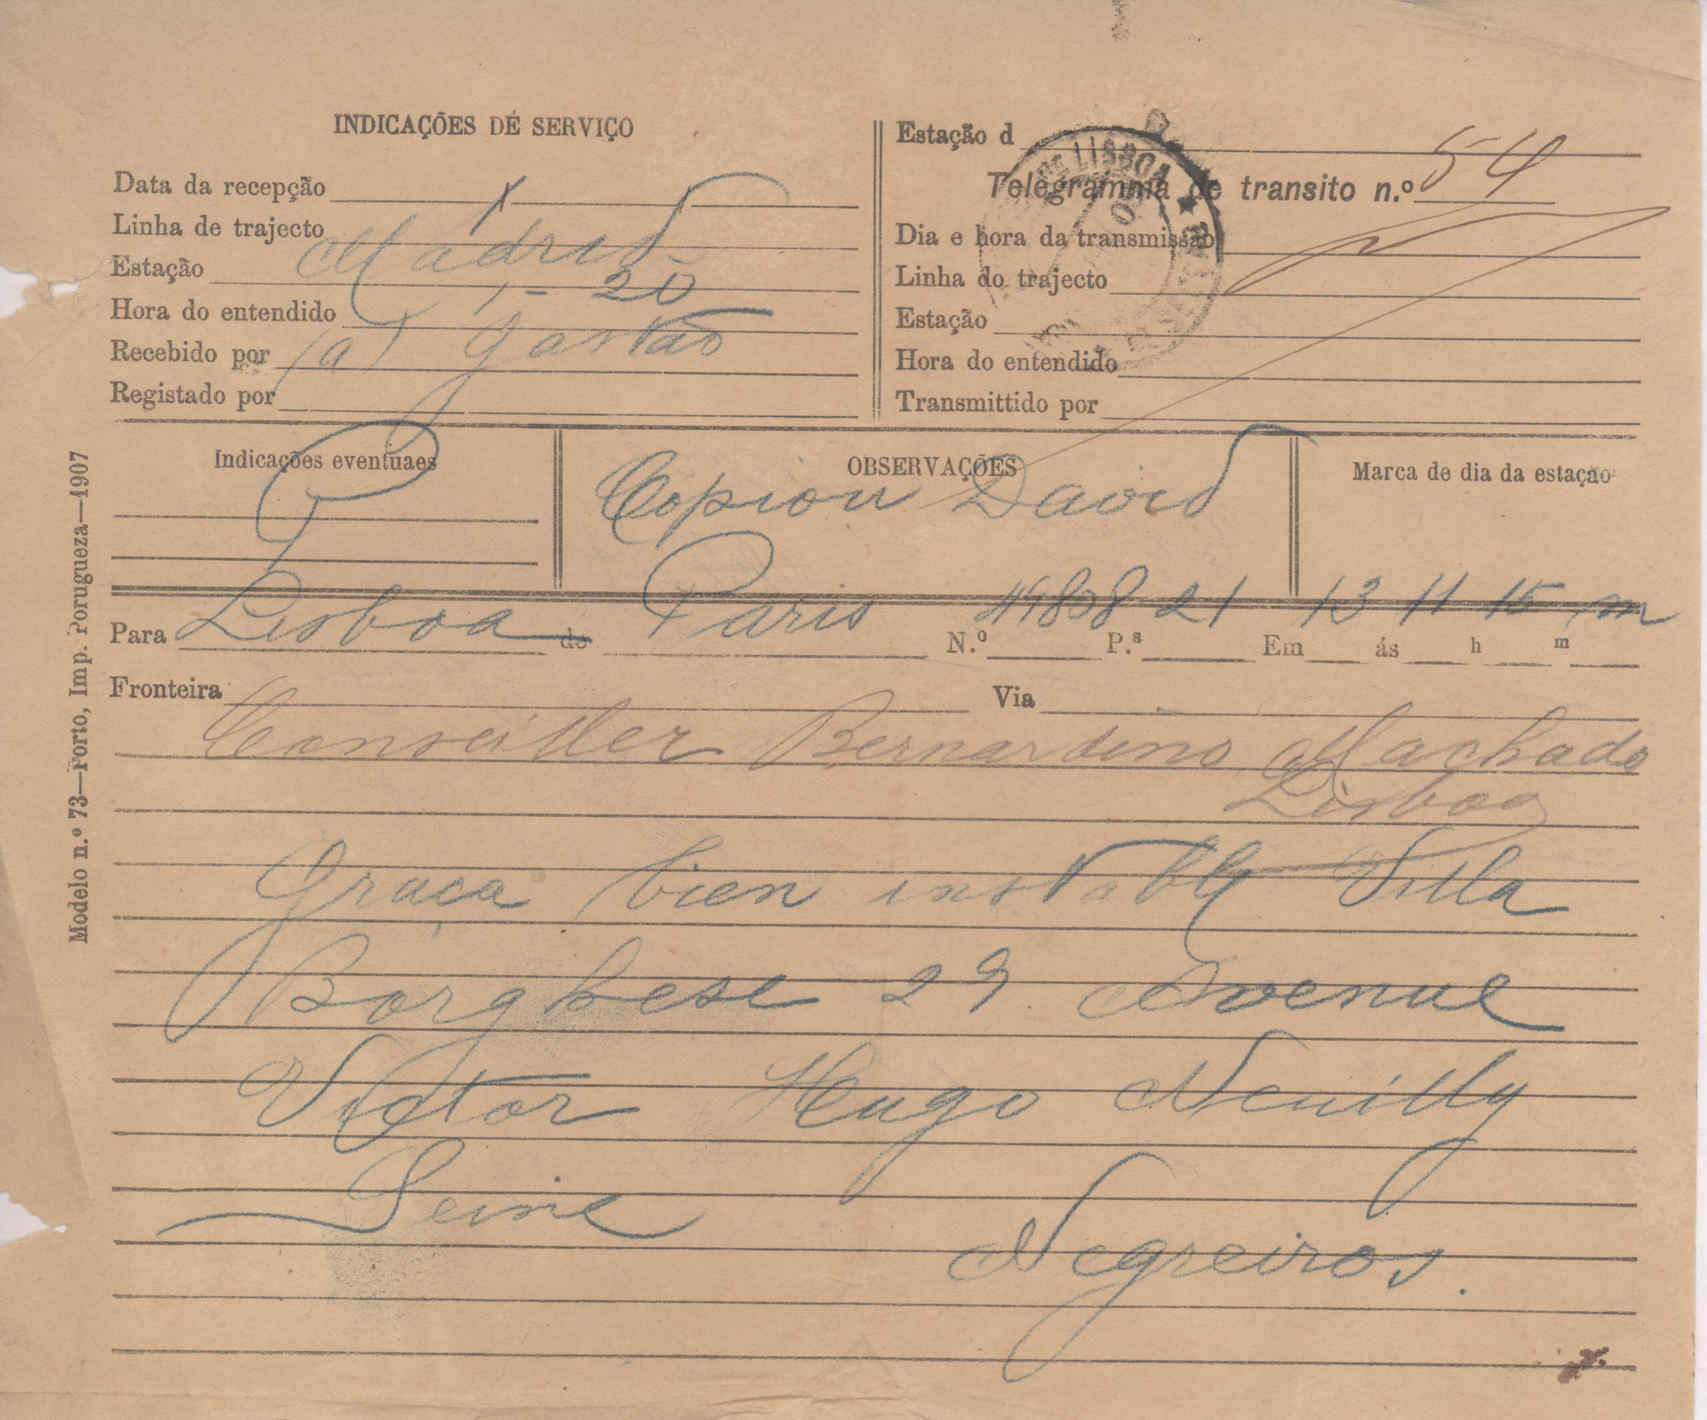 INDICAÇÕES DE SERVIÇO
Data da recepção
Linha de trajecto
Estação Madrid
Hora do entendido 1-20
Recebido por (a) Gastão
Registado por
Estação d
Telegramma de transito n.º 54
Dia e hora da transmissão
Linha do trajecto
Estação
Hora do entendido
Transmittido por
LISBOA
Indicações eventuaes
OBSERVAÇÕES
Copiou David
Marca de dia da estação
Para Lisboa de Paris N.º 41808 P.s 21 Em 13 ás 11 h 15 m m
Fronteira Via
Conseiller Bernardino Machado
Lisboa
Graça bien instable Villa
Borghese 29 Avenue
Victor Hugo Neuilly
Seine
Negreiros.
Modelo n.º 73—Porto, Imp. Porugueza—1907